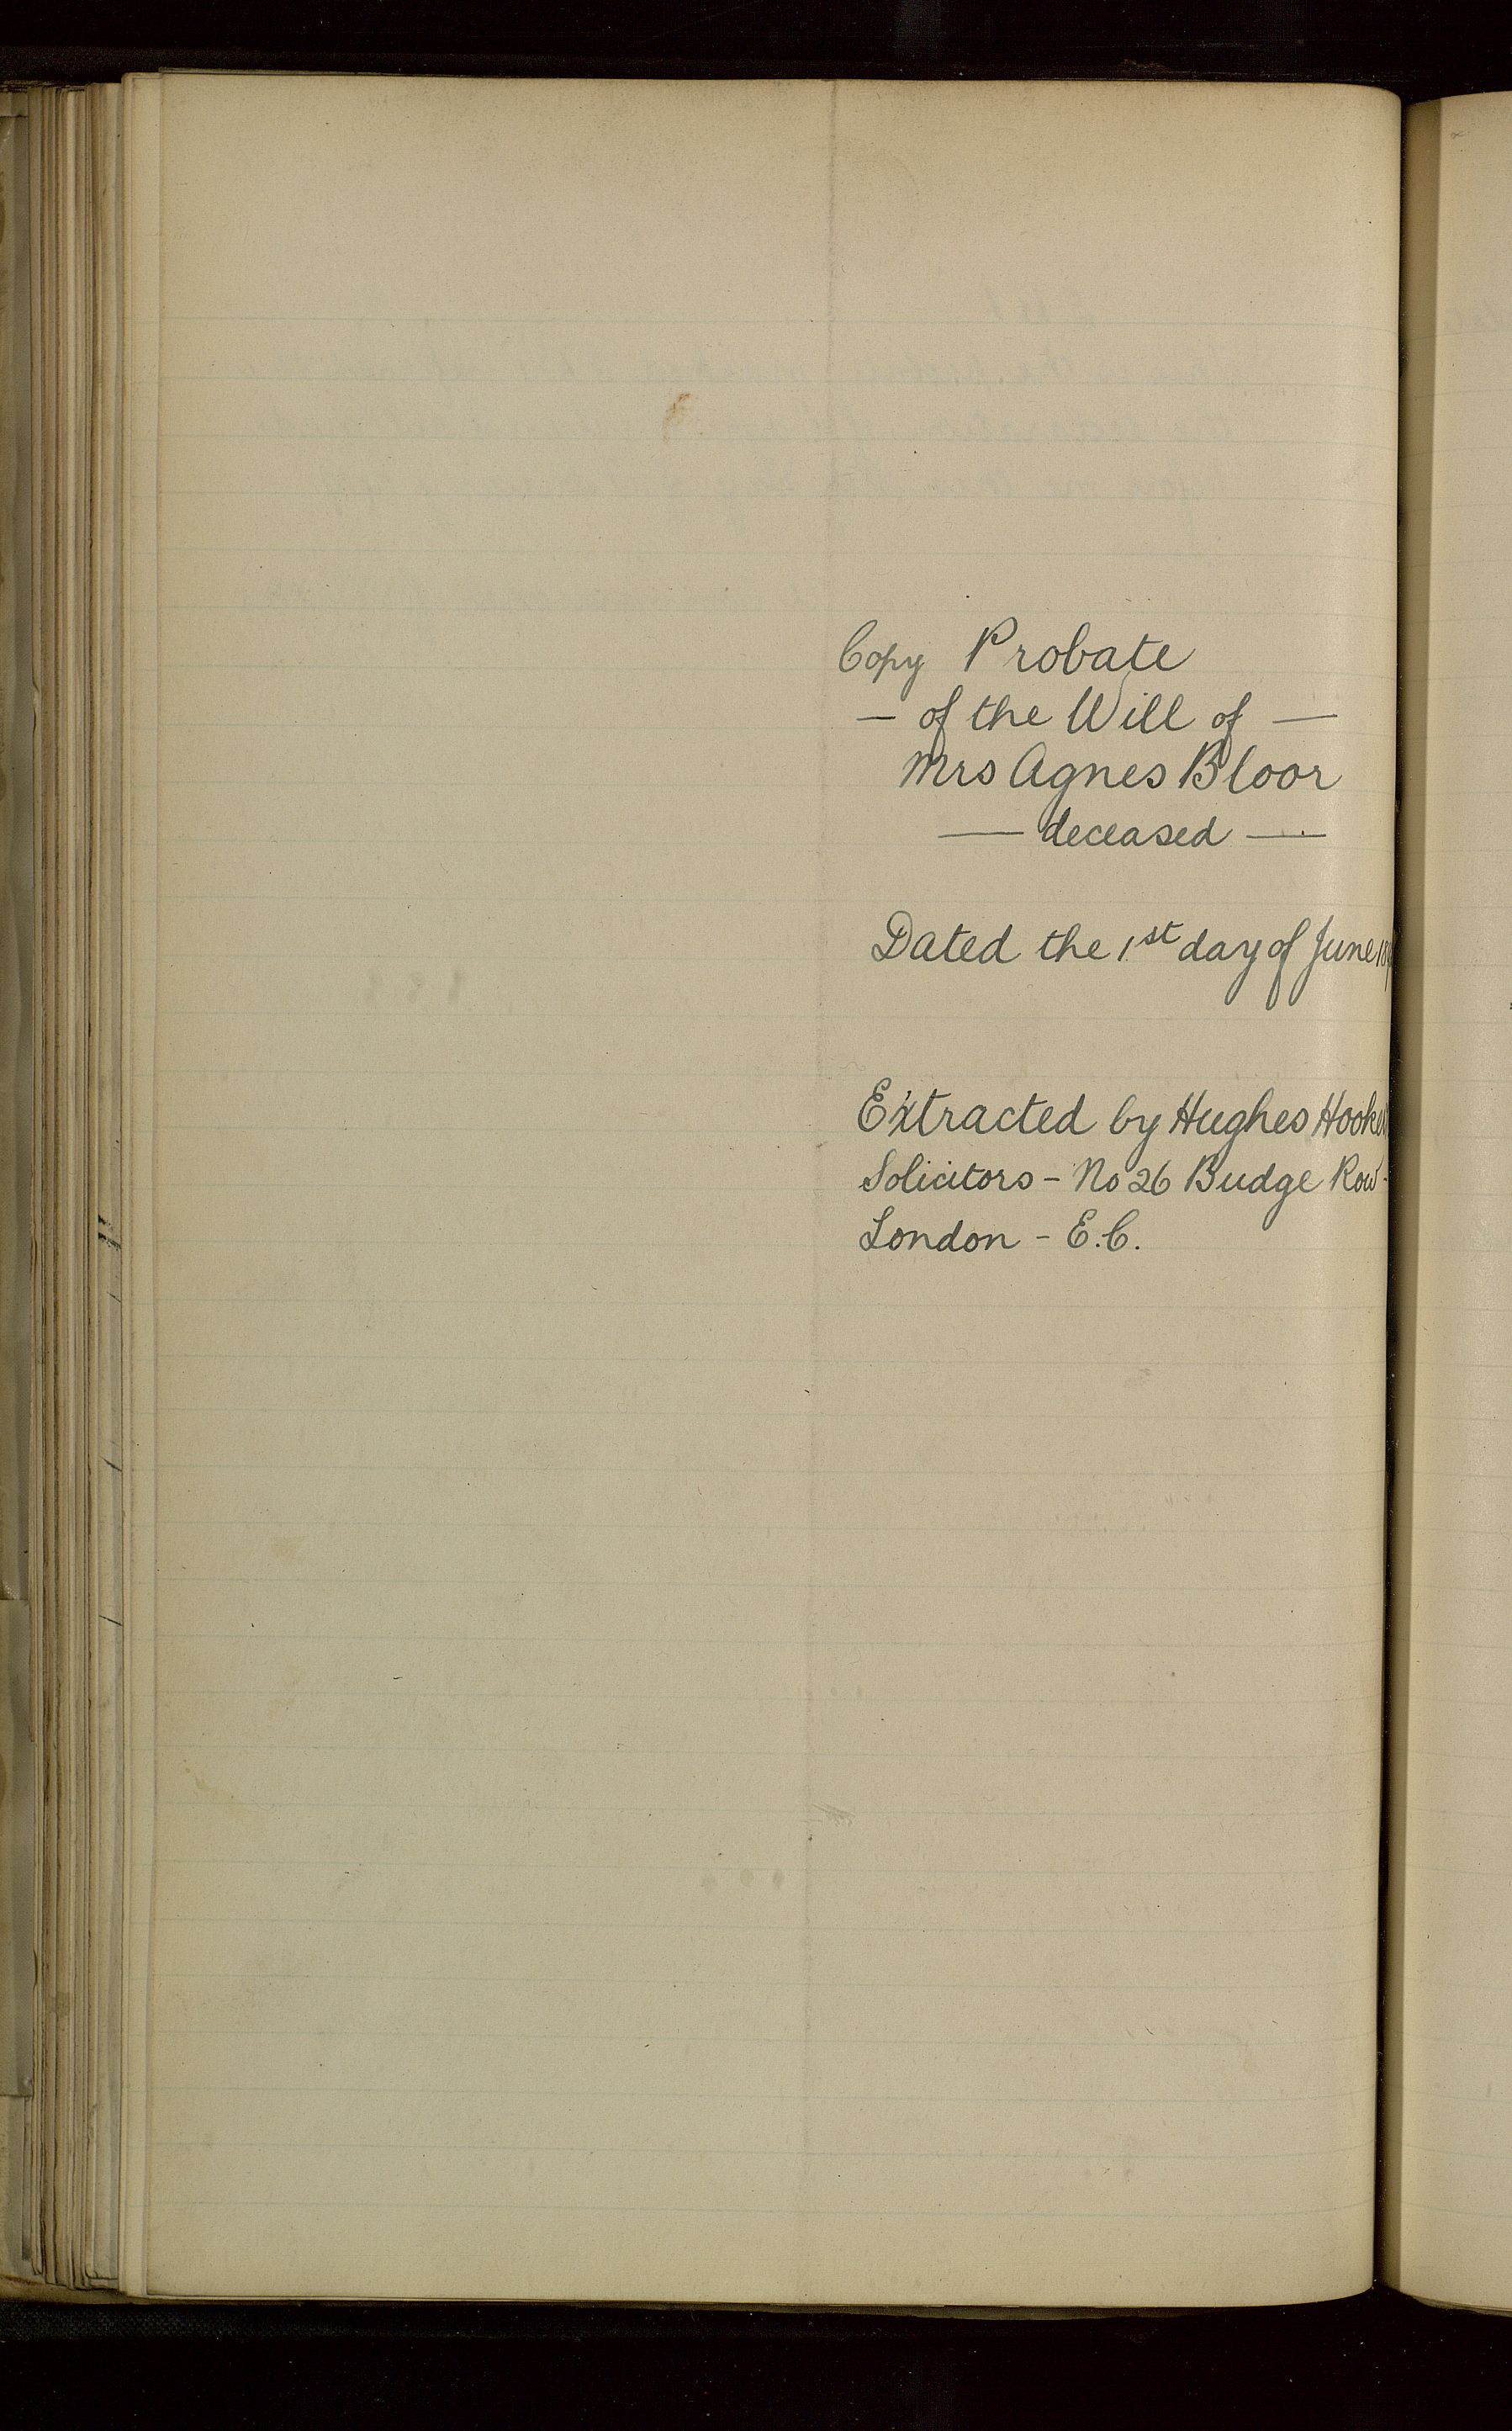 Copy Probate
— of the Will of —
Mrs Agnes Bloor
— deceased —
Dated the 1st day of June
Extracted by Hughes
Solicitors - No 26 Budge Row -
London - E.C.